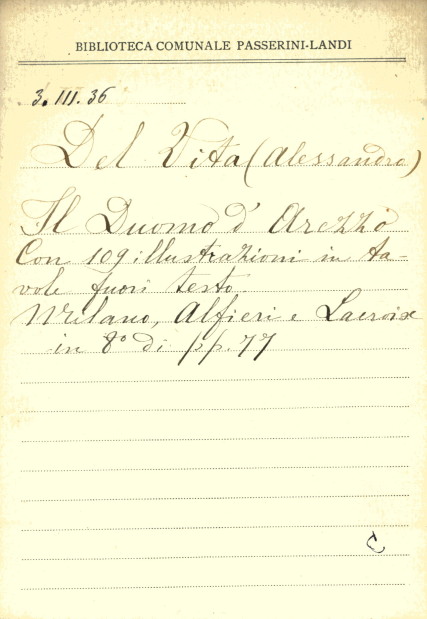 BIBLIOTECA COMUNALE PASSERINI-LANDI
3.III.36
Del Vita (Alessandro)
Il Duomo d' Arezzo
Con 109 illustrazioni in ta-
vole fuori testo.
Milano, Alfieri e Lacroix
in 8º di pp. 77
C